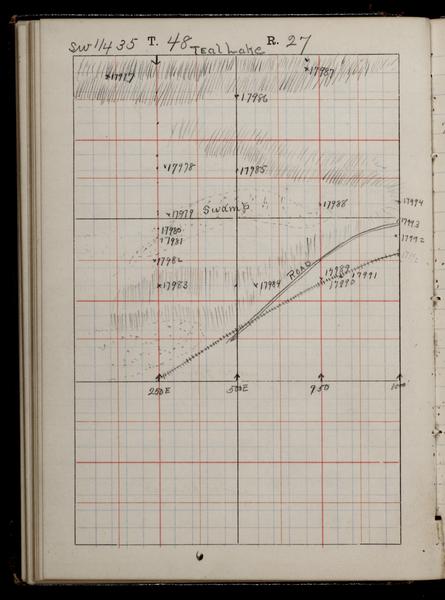 SW 1/4 35 T. 48 R. 27
Teal Lake
17917 17987
17986
17978 17985
17979 Swamp 17988 17994
17980 17993
17981 17992
17982
17983 17984 Road 17989 17991
17990
250E 500E 750 1000